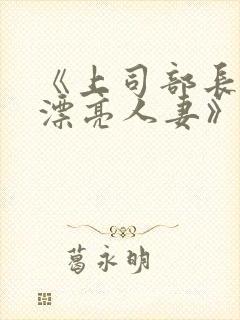 《上司部长
漂亮人妻》
葛永明